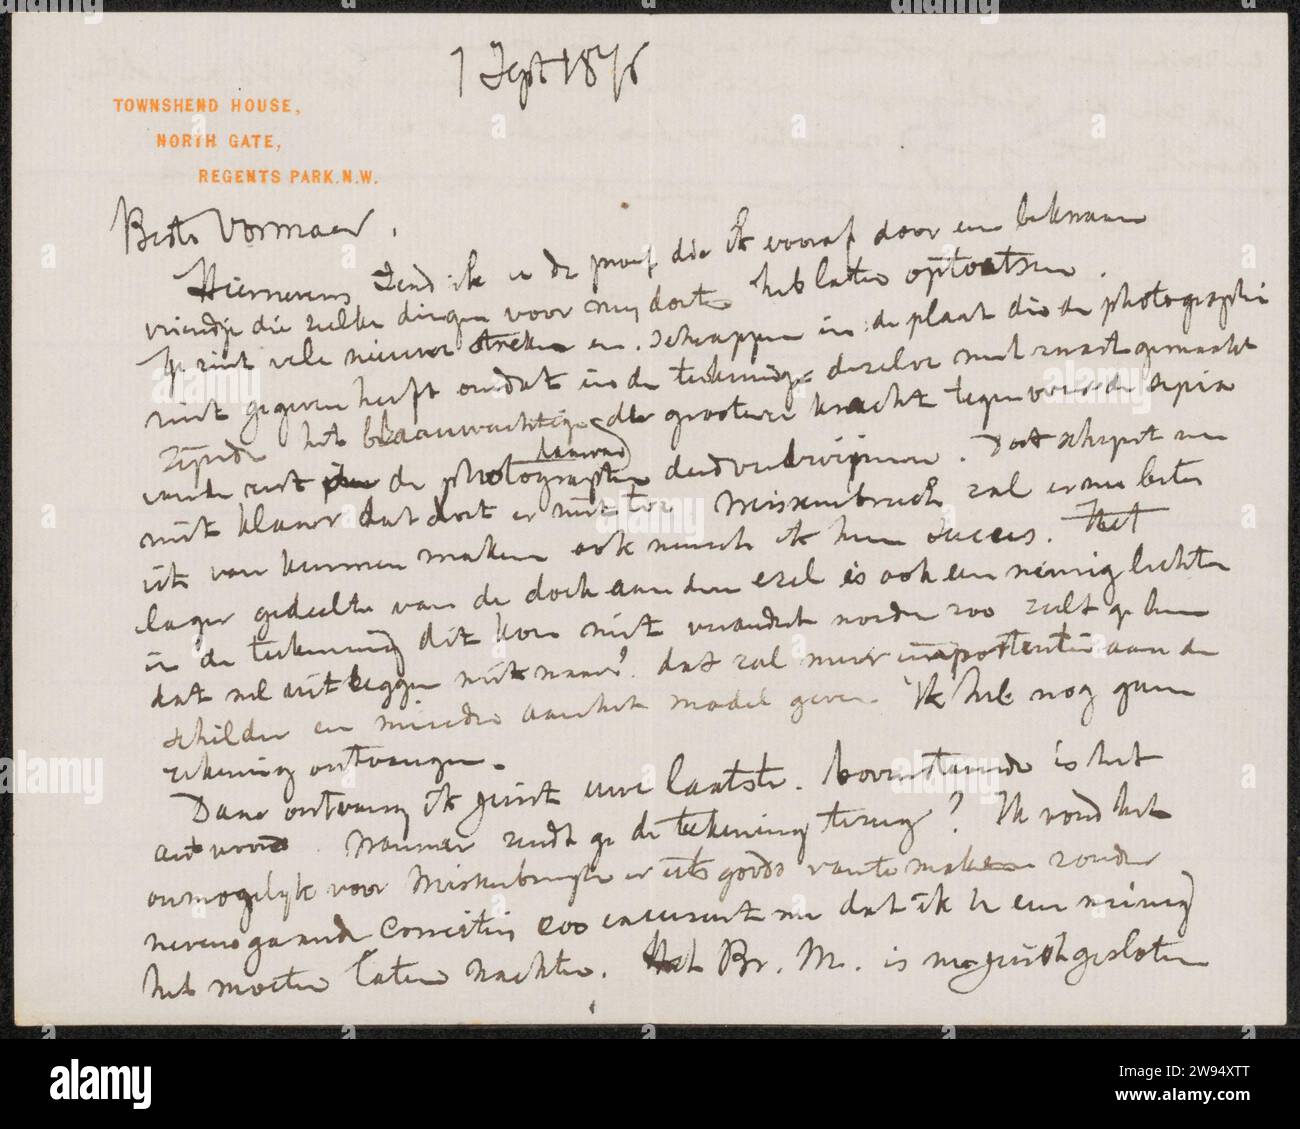 1 Sept 1876
TOWNSHEND HOUSE,
NORTH GATE,
REGENTS PARK.N.W.
Beste Vormaer.
Hiernevens Zend ik u de proef die ik vooraf door een bekwaam
vriendje die zulke dingen voor my doet heb laten optoetsen.
Ge ziet vele nieuwe streken en schrappen in de plaat die de photographie
niet gegeven heeft omdat in de tekening dezelve met zwart gemaakt
zynde het blaauwachtige der grootere kracht tegenover de sepia
van de rest de photographie daarvan deed verdwijnen. Dat schynt me
niet klaar dat doet er niet toe Meissenbruch zal er me beter
uit van kunnen maken ook wensch ik hem succes. Het
lager gedeelte van de doek aan den ezel is ook een weinig lichter
in de tekening dit kon niet veranderd worden zoo zult ge hem
dat wel uitleggen niet waar? dat zal meer importentie aan de
schilder en minder aan het model geven. Ik heb nog geen
rekening ontvangen.
Daar ontvang ik juist uwe laatste. bovenstaande is het
antwoord. Wanneer zendt ge de tekening terug? Ik vond het
onmogelyk voor Meissenbruch er iets goeds van te maken zonder
nevensgaande correctie zoo excuseert me dat ik U een weinig
het moeten laten wachten. Het Br. M. is me juist gesloten
alamy
Image ID: 2W94XTT
www.alamy.com